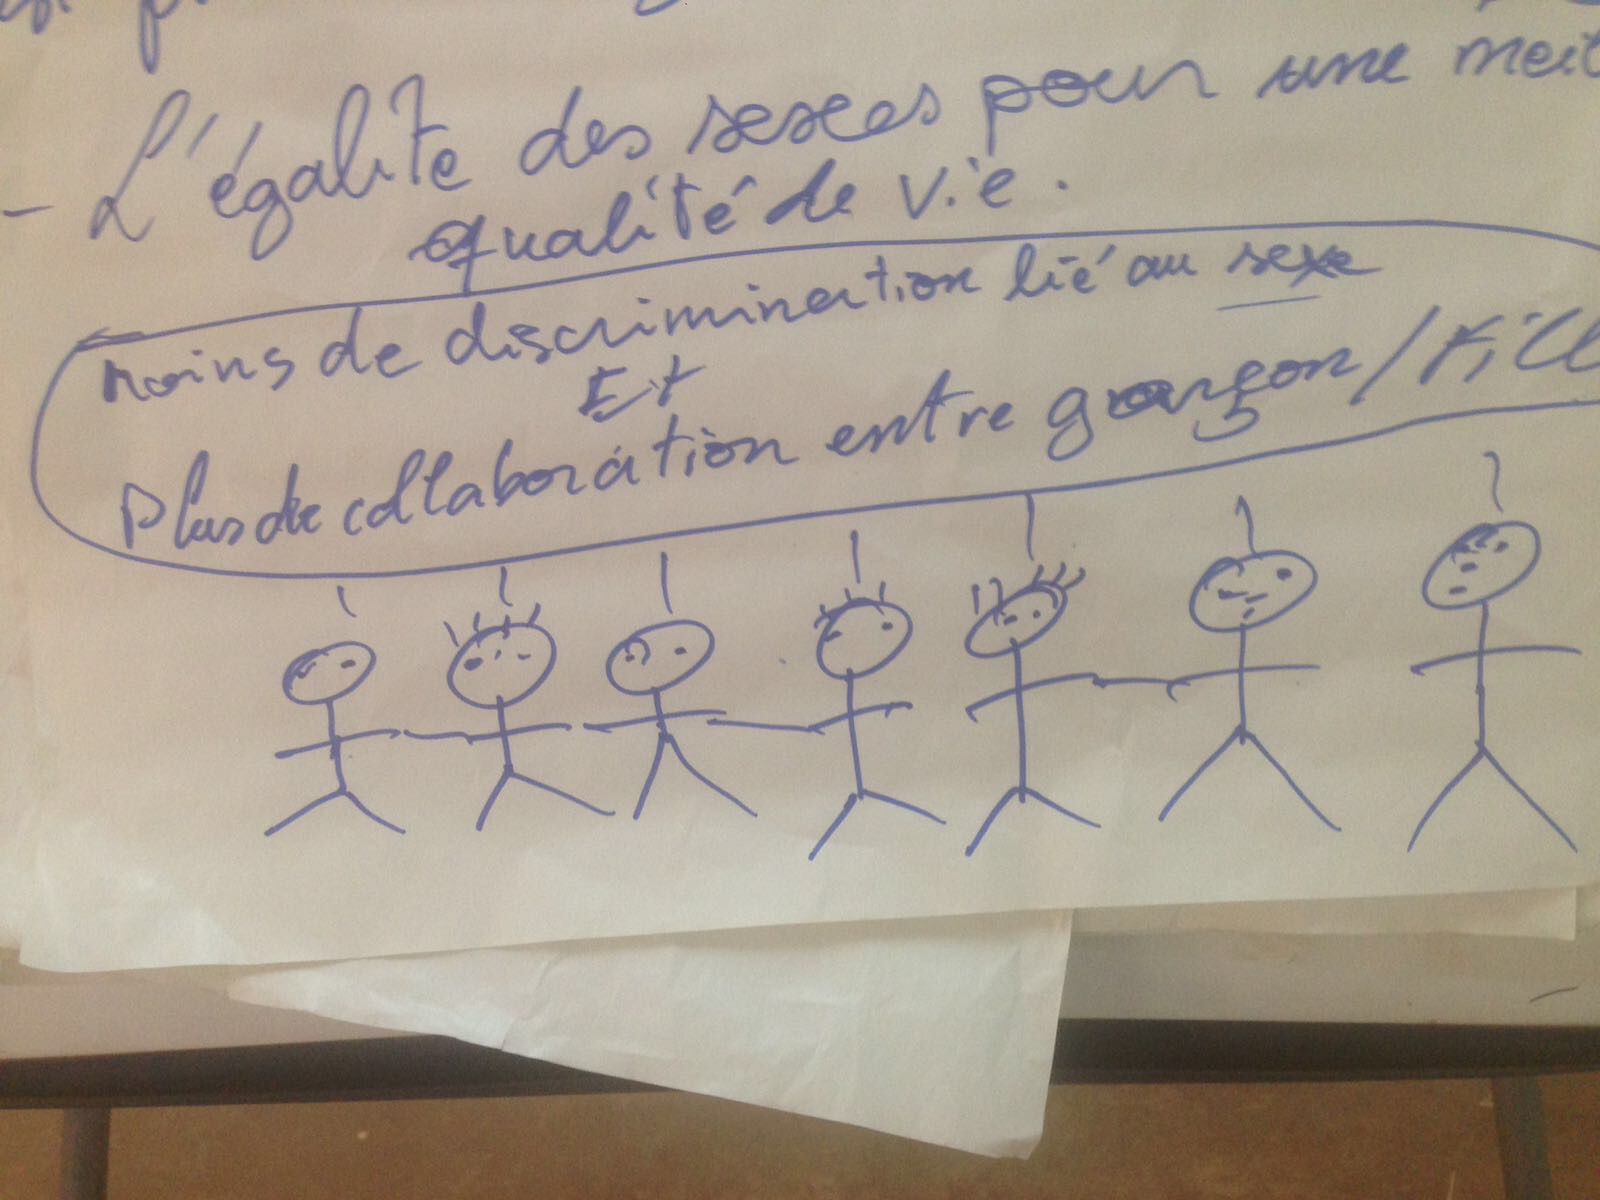 - L'égalité des sexes pour une meil
qualité de vie.
Moins de discrimination lié au sexe
Et
Plus de collaboration entre garçon/Fill